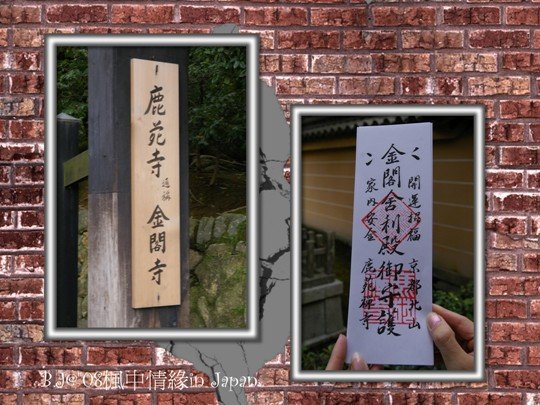 鹿苑寺 通稱 金閣寺
開運招福 京都北山
金閣舍利殿御守護
家内安全 鹿苑禅寺
B.J@'08楓中情緣in Japan